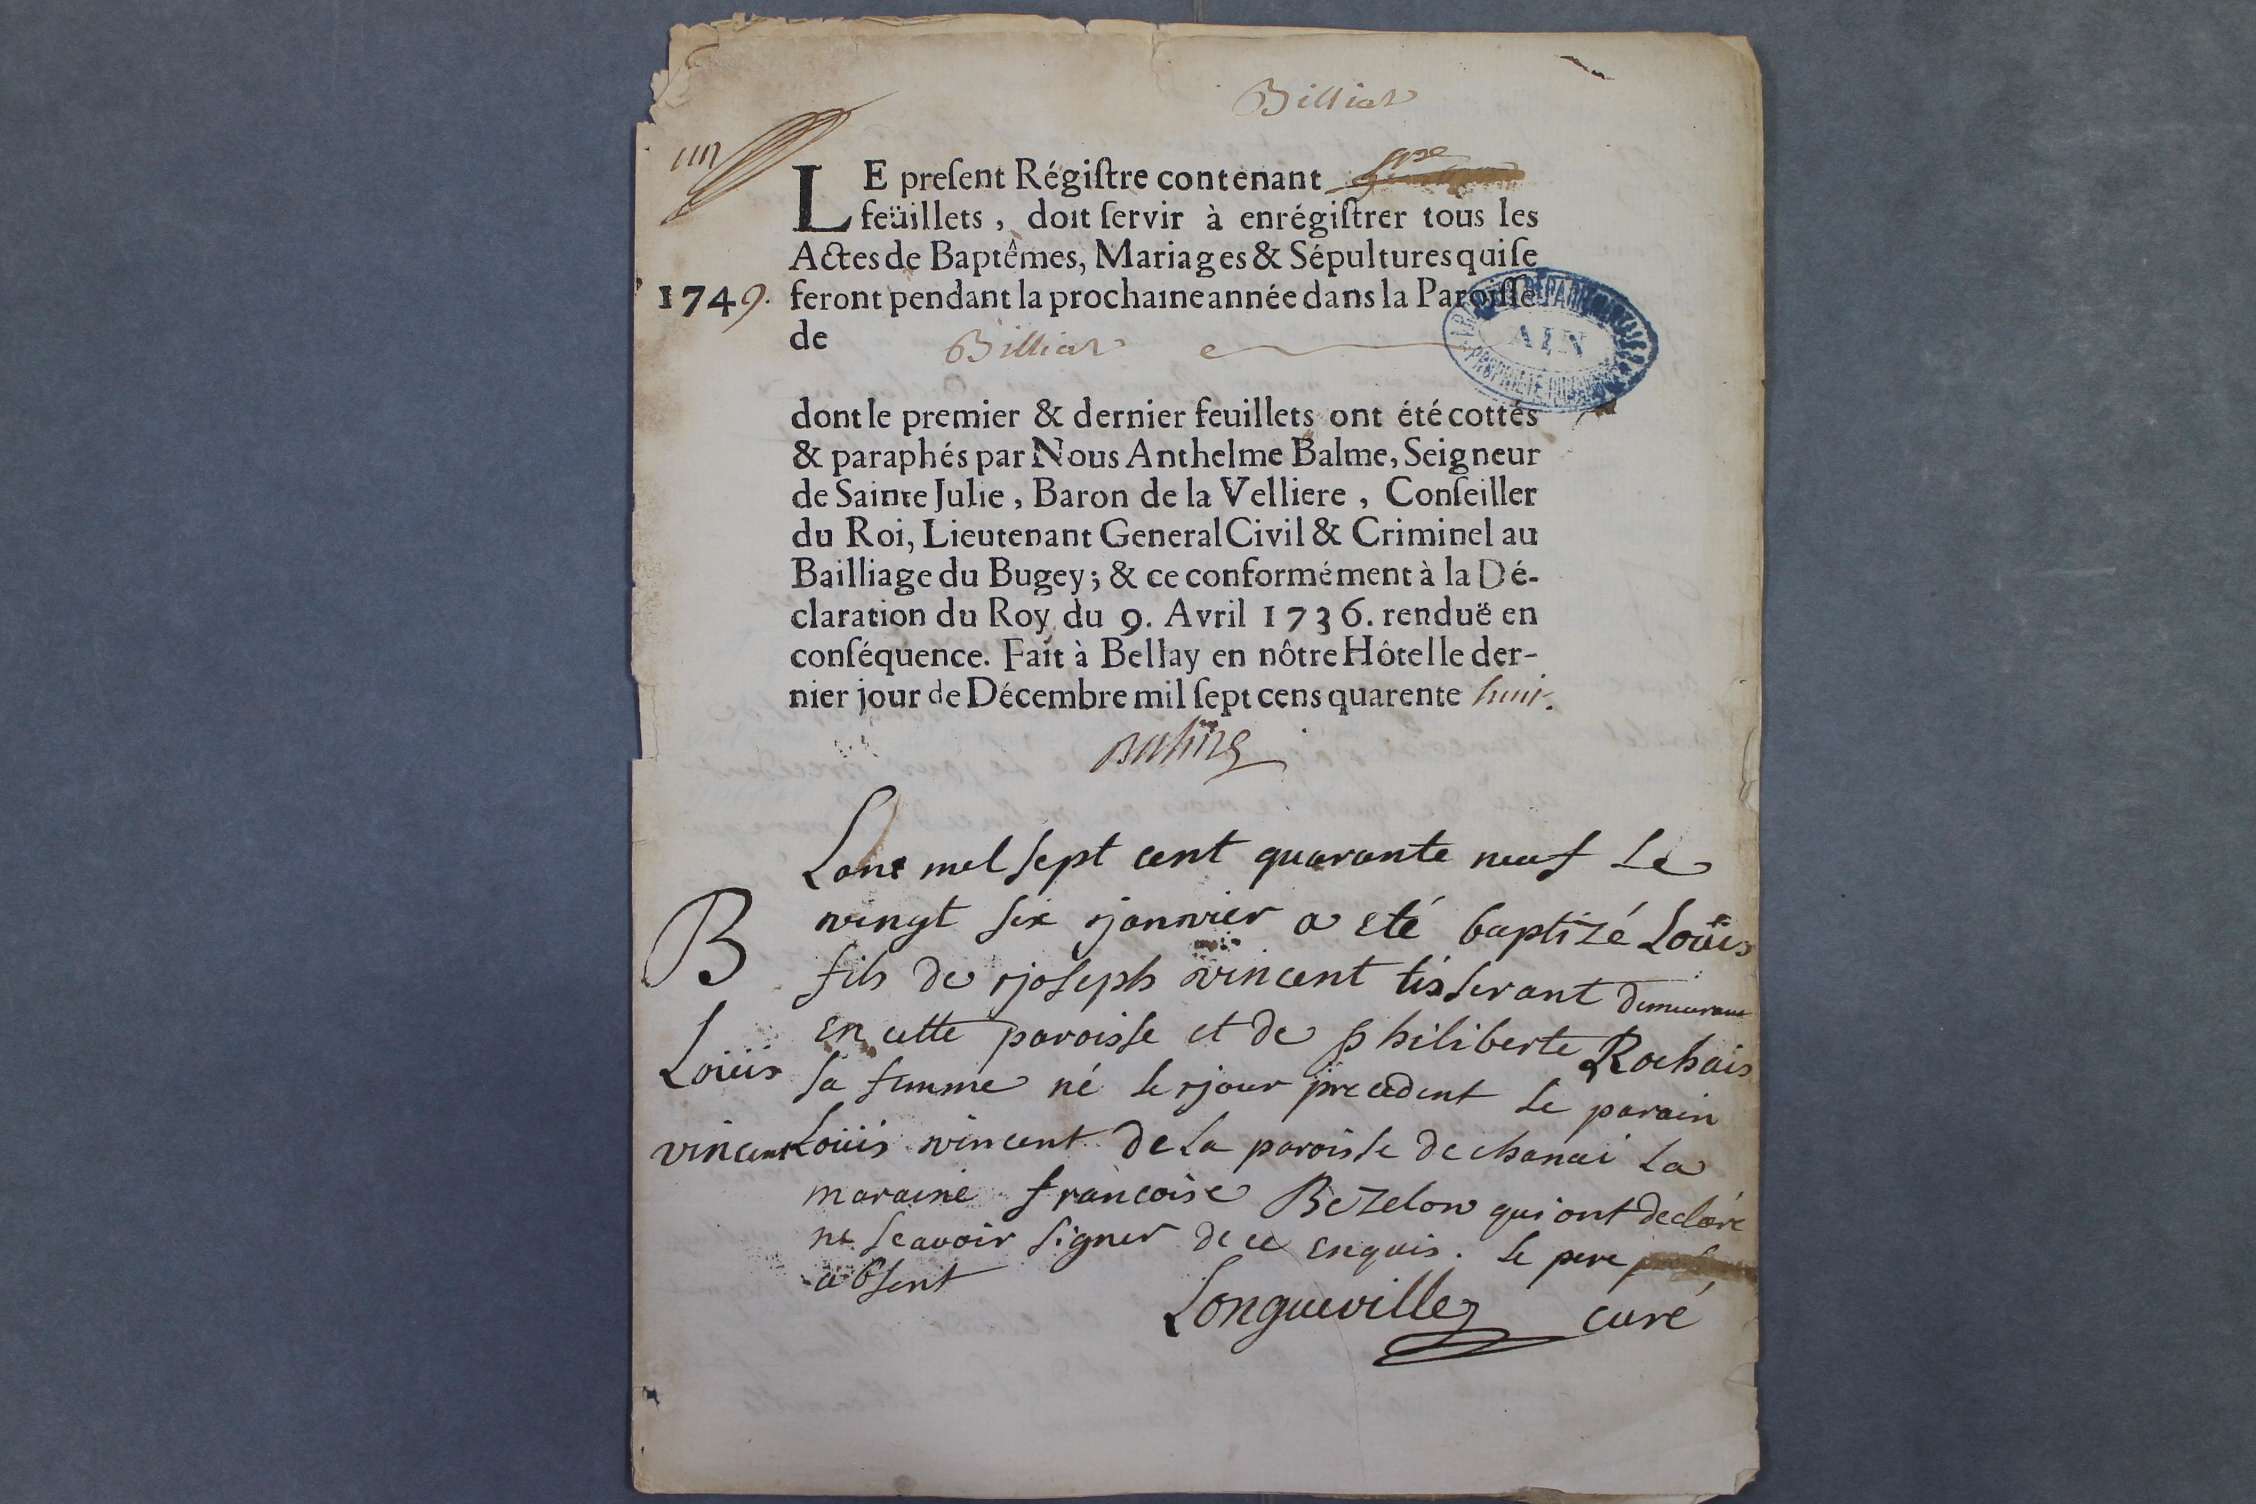 Billiat
LE preſent Régiſtre contenant
feüillets, doit ſervir à enrégiſtrer tous les
Actes de Baptêmes, Mariages & Sépultures qui ſe
1749. feront pendant la prochaine année dans la Paroiſſe
de Billiat
AIN
dont le premier & dernier feuillets ont été cottés
& paraphés par Nous Anthelme Balme, Seigneur
de Sainte Julie, Baron de la Velliere, Conſeiller
du Roi, Lieutenant General Civil & Criminel au
Bailliage du Bugey; & ce conformément à la Dé-
claration du Roy du 9. Avril 1736. renduë en
conſéquence. Fait à Bellay en nôtre Hôtel le der-
nier jour de Décembre mil ſept cens quarente huit.
Balme
Lane mel sept cent quarante neuf Le
B vingt six janvier a eté baptizé Loüis
fils de joseph vincent tisserant demeurant
en cette paroisse et de philiberte Rochais
Loüis sa femme né le jour precedent le parain
vincent Loüis vincent de La paroisse de chanai La
maraine françoise Bezelon qui ont declaré
ne scavoir signer de ce enquis. le pere
absent
Longueville curé